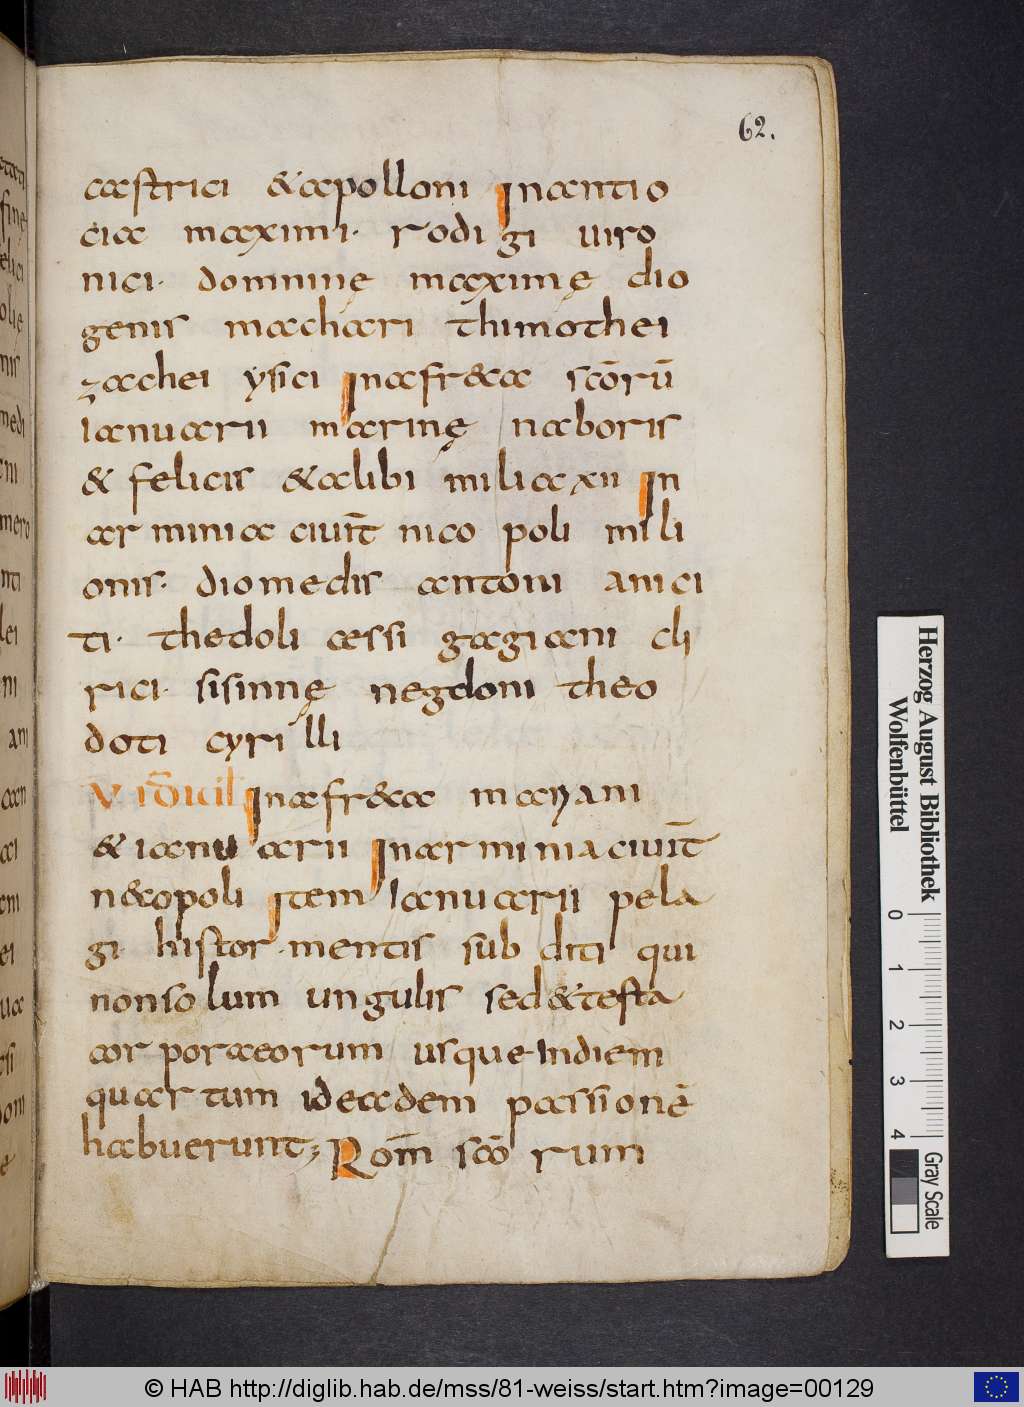 62.
castrici &apolloni Inantio
cia maximi· rodigi uiro
nici· domninę maximę dio
genis machari thimothei
zachei ysici Inafr&ca scōrū
ianuarii marinę naboris
& felicis &alibi milia xii In
arminia ciuit̄ nicopoli mili
onis· diomedis antoni anici
ti· thedoli aessi gagiani cli
rici· sisinnę negdoni theo
doti cyrilli
V ID̄ IUIL Inafr&ca mayani
& ianuarii Inarminia ciuit̄
n&copoli Item Ianuarii pela
gi· histor·mentis sub diti qui
nonsolum ungulis sed&testa
cor poraeorum usque Indiem
quartum ideadem passionē
habuerunt; Rom̄ scō rum
Herzog August Bibliothek
Wolfenbüttel
0 1 2 3 4
Gray Scale
© HAB http://diglib.hab.de/mss/81-weiss/start.htm?image=00129